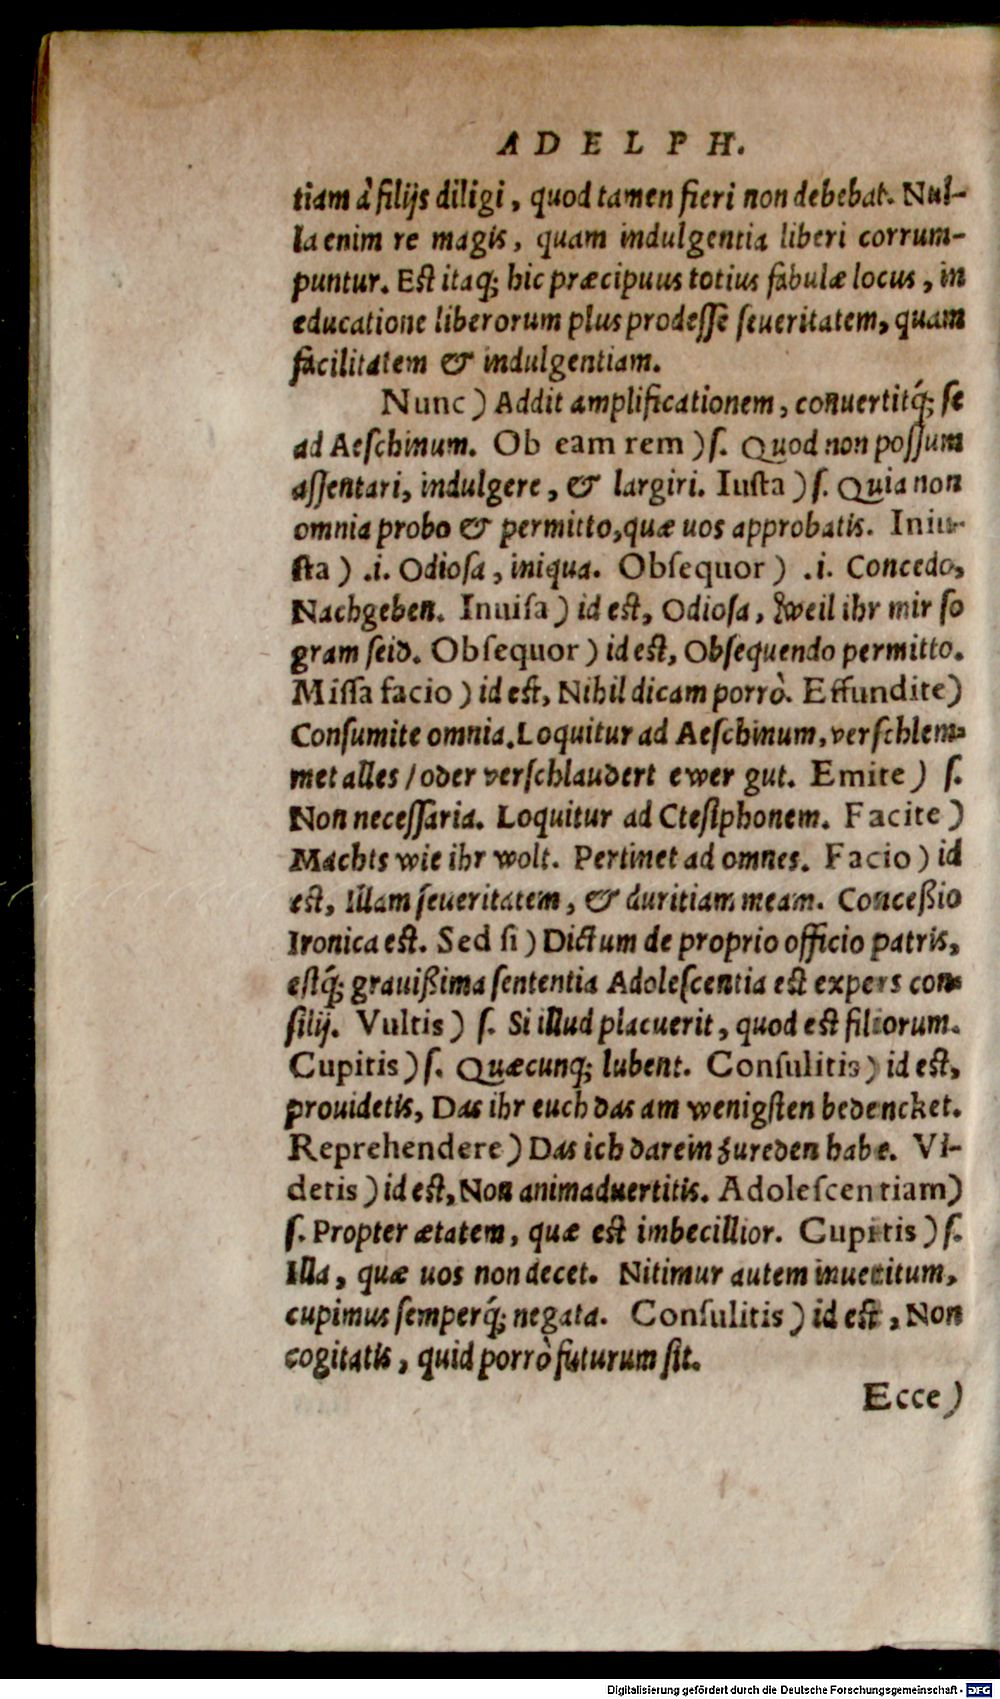 ADELPH.
tiam à filijs diligi, quod tamen fieri non debebat. Nul-
la enim re magis, quam indulgentia liberi corrum-
puntur. Est itaq; hic præcipuus totius fabulæ locus, in
educatione liberorum plus prodesse seueritatem, quam
facilitatem & indulgentiam.
Nunc) Addit amplificationem, conuertitq́; se
ad Aeschinum. Ob eam rem) s. Quod non possum
assentari, indulgere, & largiri. Iusta) s. Quia non
omnia probo & permitto, quæ uos approbatis. Iniu-
sta) .i. Odiosa, iniqua. Obsequor) .i. Concedo,
Nachgeben. Inuisa) id est, Odiosa, Weil ihr mir so
gram seid. Obsequor) id est, Obsequendo permitto.
Missa facio) id est, Nihil dicam porrò. Effundite)
Consumite omnia. Loquitur ad Aeschinum, verschlem-
met alles / oder verschlaudert ewer gut. Emite) s.
Non necessaria. Loquitur ad Ctesiphonem. Facite)
Machts wie ihr wolt. Pertinet ad omnes. Facio) id
est, Illam seueritatem, & duritiam meam. Conceßio
Ironica est. Sed si) Dictum de proprio officio patris,
estq́; grauißima sententia Adolescentia est expers con-
silij. Vultis) s. Si illud placuerit, quod est filiorum.
Cupitis) s. Quæcunq; lubent. Consulitis) id est,
prouidetis, Das ihr euch das am wenigsten bedencket.
Reprehendere) Das ich darein zureden habe. Vi-
detis) id est, Non animaduertitis. Adolescentiam)
s. Propter ætatem, quæ est imbecillior. Cupitis) s.
Illa, quæ uos non decet. Nitimur autem inuetitum,
cupimus semperq́; negata. Consulitis) id est, Non
cogitatis, quid porrò futurum sit.
Ecce)
Digitalisierung gefördert durch die Deutsche Forschungsgemeinschaft - DFG